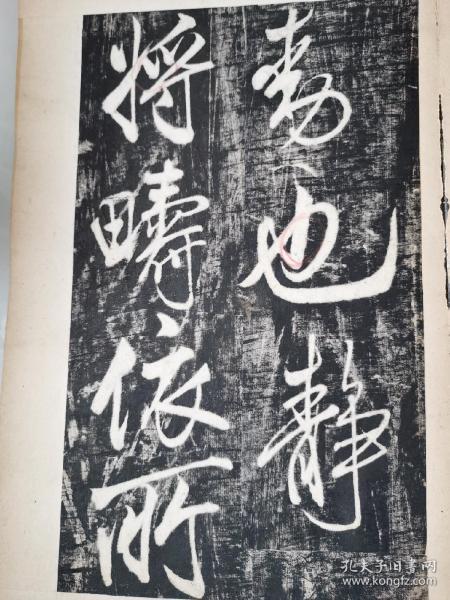 動也靜
將疇依所
孔夫子旧书网
www.kongfz.com